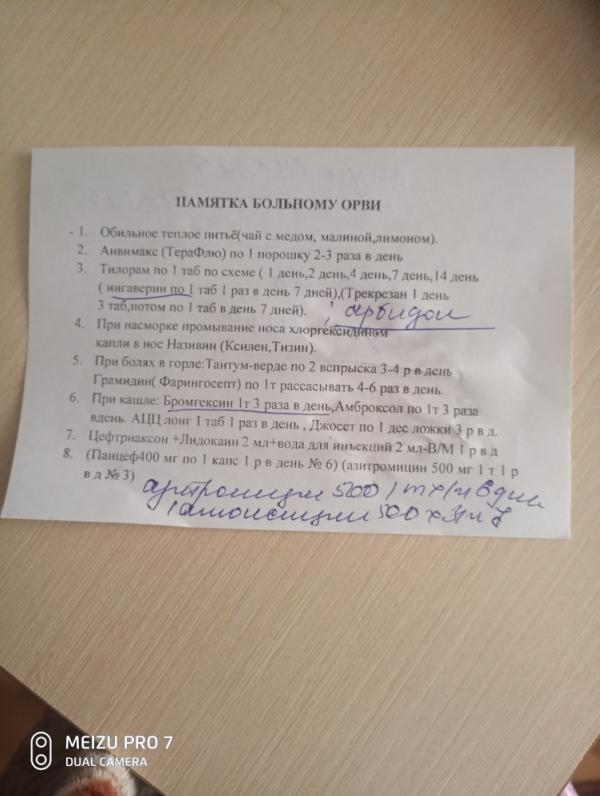 ПАМЯТКА БОЛЬНОМУ ОРВИ
1. Обильное теплое питьё(чай с медом, малиной,лимоном).
2. Анвимакс (ТераФлю) по 1 порошку 2-3 раза в день
3. Тилорам по 1 таб по схеме ( 1 день,2 день,4 день,7 день,14 день
( ингаверин по 1 таб 1 раз в день 7 дней),(Трекрезан 1 день
3 таб,потом по 1 таб в день 7 дней). арбидол
4. При насморке промывание носа хлоргексидином
капли в нос Називин (Ксилен,Тизин).
5. При болях в горле:Тантум-верде по 2 вспрыска 3-4 р в день
Грамидин( Фарингосепт) по 1т рассасывать 4-6 раз в день.
6. При кашле: Бромгексин 1т 3 раза в день,Амброксол по 1т 3 раза
вдень. АЦЦ лонг 1 таб 1 раз в день , Джосет по 1 дес ложки 3 р в д.
7. Цефтриаксон +Лидокаин 2 мл+вода для инъекций 2 мл-В/М 1 р в д
8. (Панцеф400 мг по 1 капс 1 р в день № 6) (азитромицин 500 мг 1 т 1 р
в д № 3) 500 1 т
500 х
MEIZU PRO 7
DUAL CAMERA